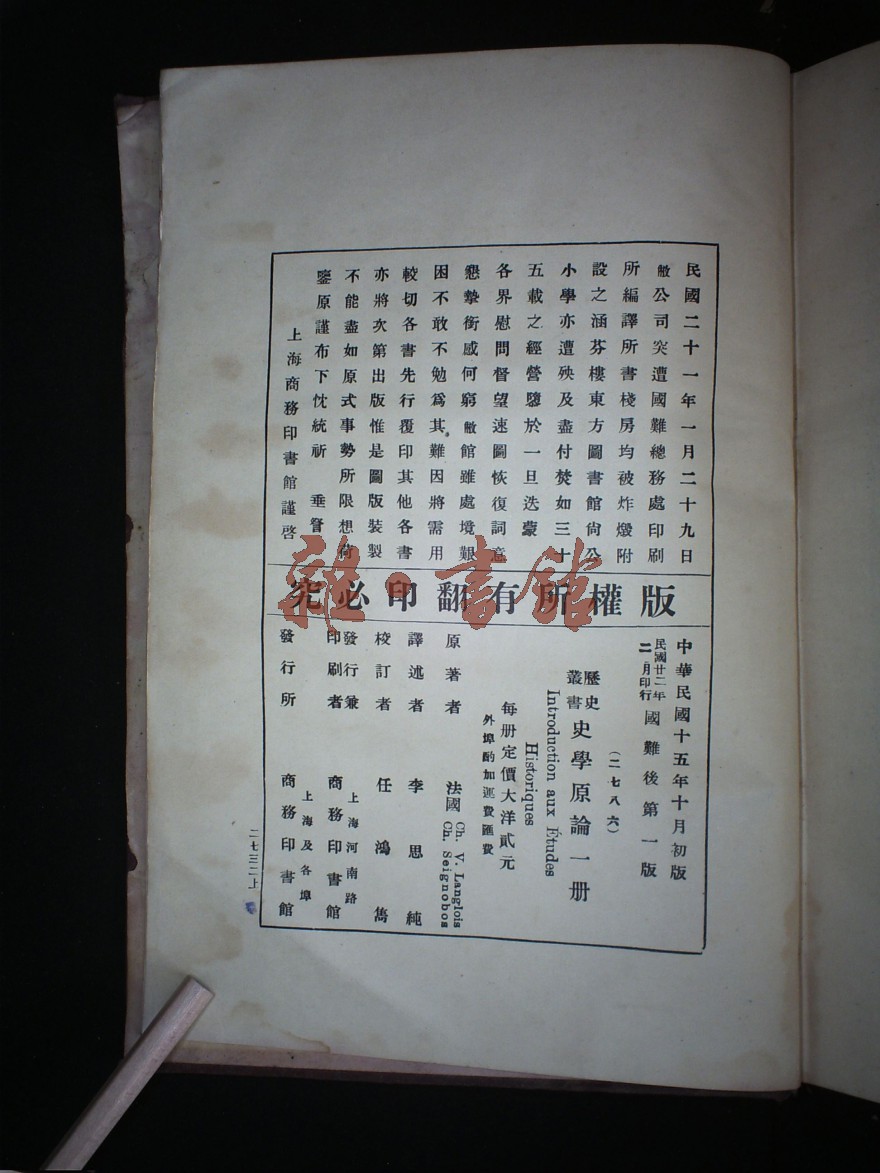 民國二十一年一月二十九日
敝公司突遭國難總務處印刷
所編譯所書棧房均被炸燬附
設之涵芬樓東方圖書館尚公
小學亦遭殃及盡付焚如三十
五載之經營隳於一旦迭蒙
各界慰問督望速圖恢復詞意
懇摯銜感何窮敝館雖處境艱
困不敢不勉爲其難因將需用
較切各書先行覆印其他各書
亦將次第出版惟是圖版裝製
不能盡如原式事勢所限想荷
鑒原謹布下忱統祈 垂詧
上海商務印書館謹啓
版權所有翻印必究
中華民國十五年十月初版
民國廿二年二月印行 國難後第一版
(二七八六)
歷史叢書 史學原論一册
Introduction aux Études
Historiques
每册定價大洋貳元
外埠酌加運費匯費
原著者 法國 Ch. V. Langlois
Ch. Seignobos
譯述者 李思純
校訂者 任鴻雋
發行兼印刷者 上海河南路 商務印書館
發行所 上海及各埠 商務印書館
二七三二上
雜·書館